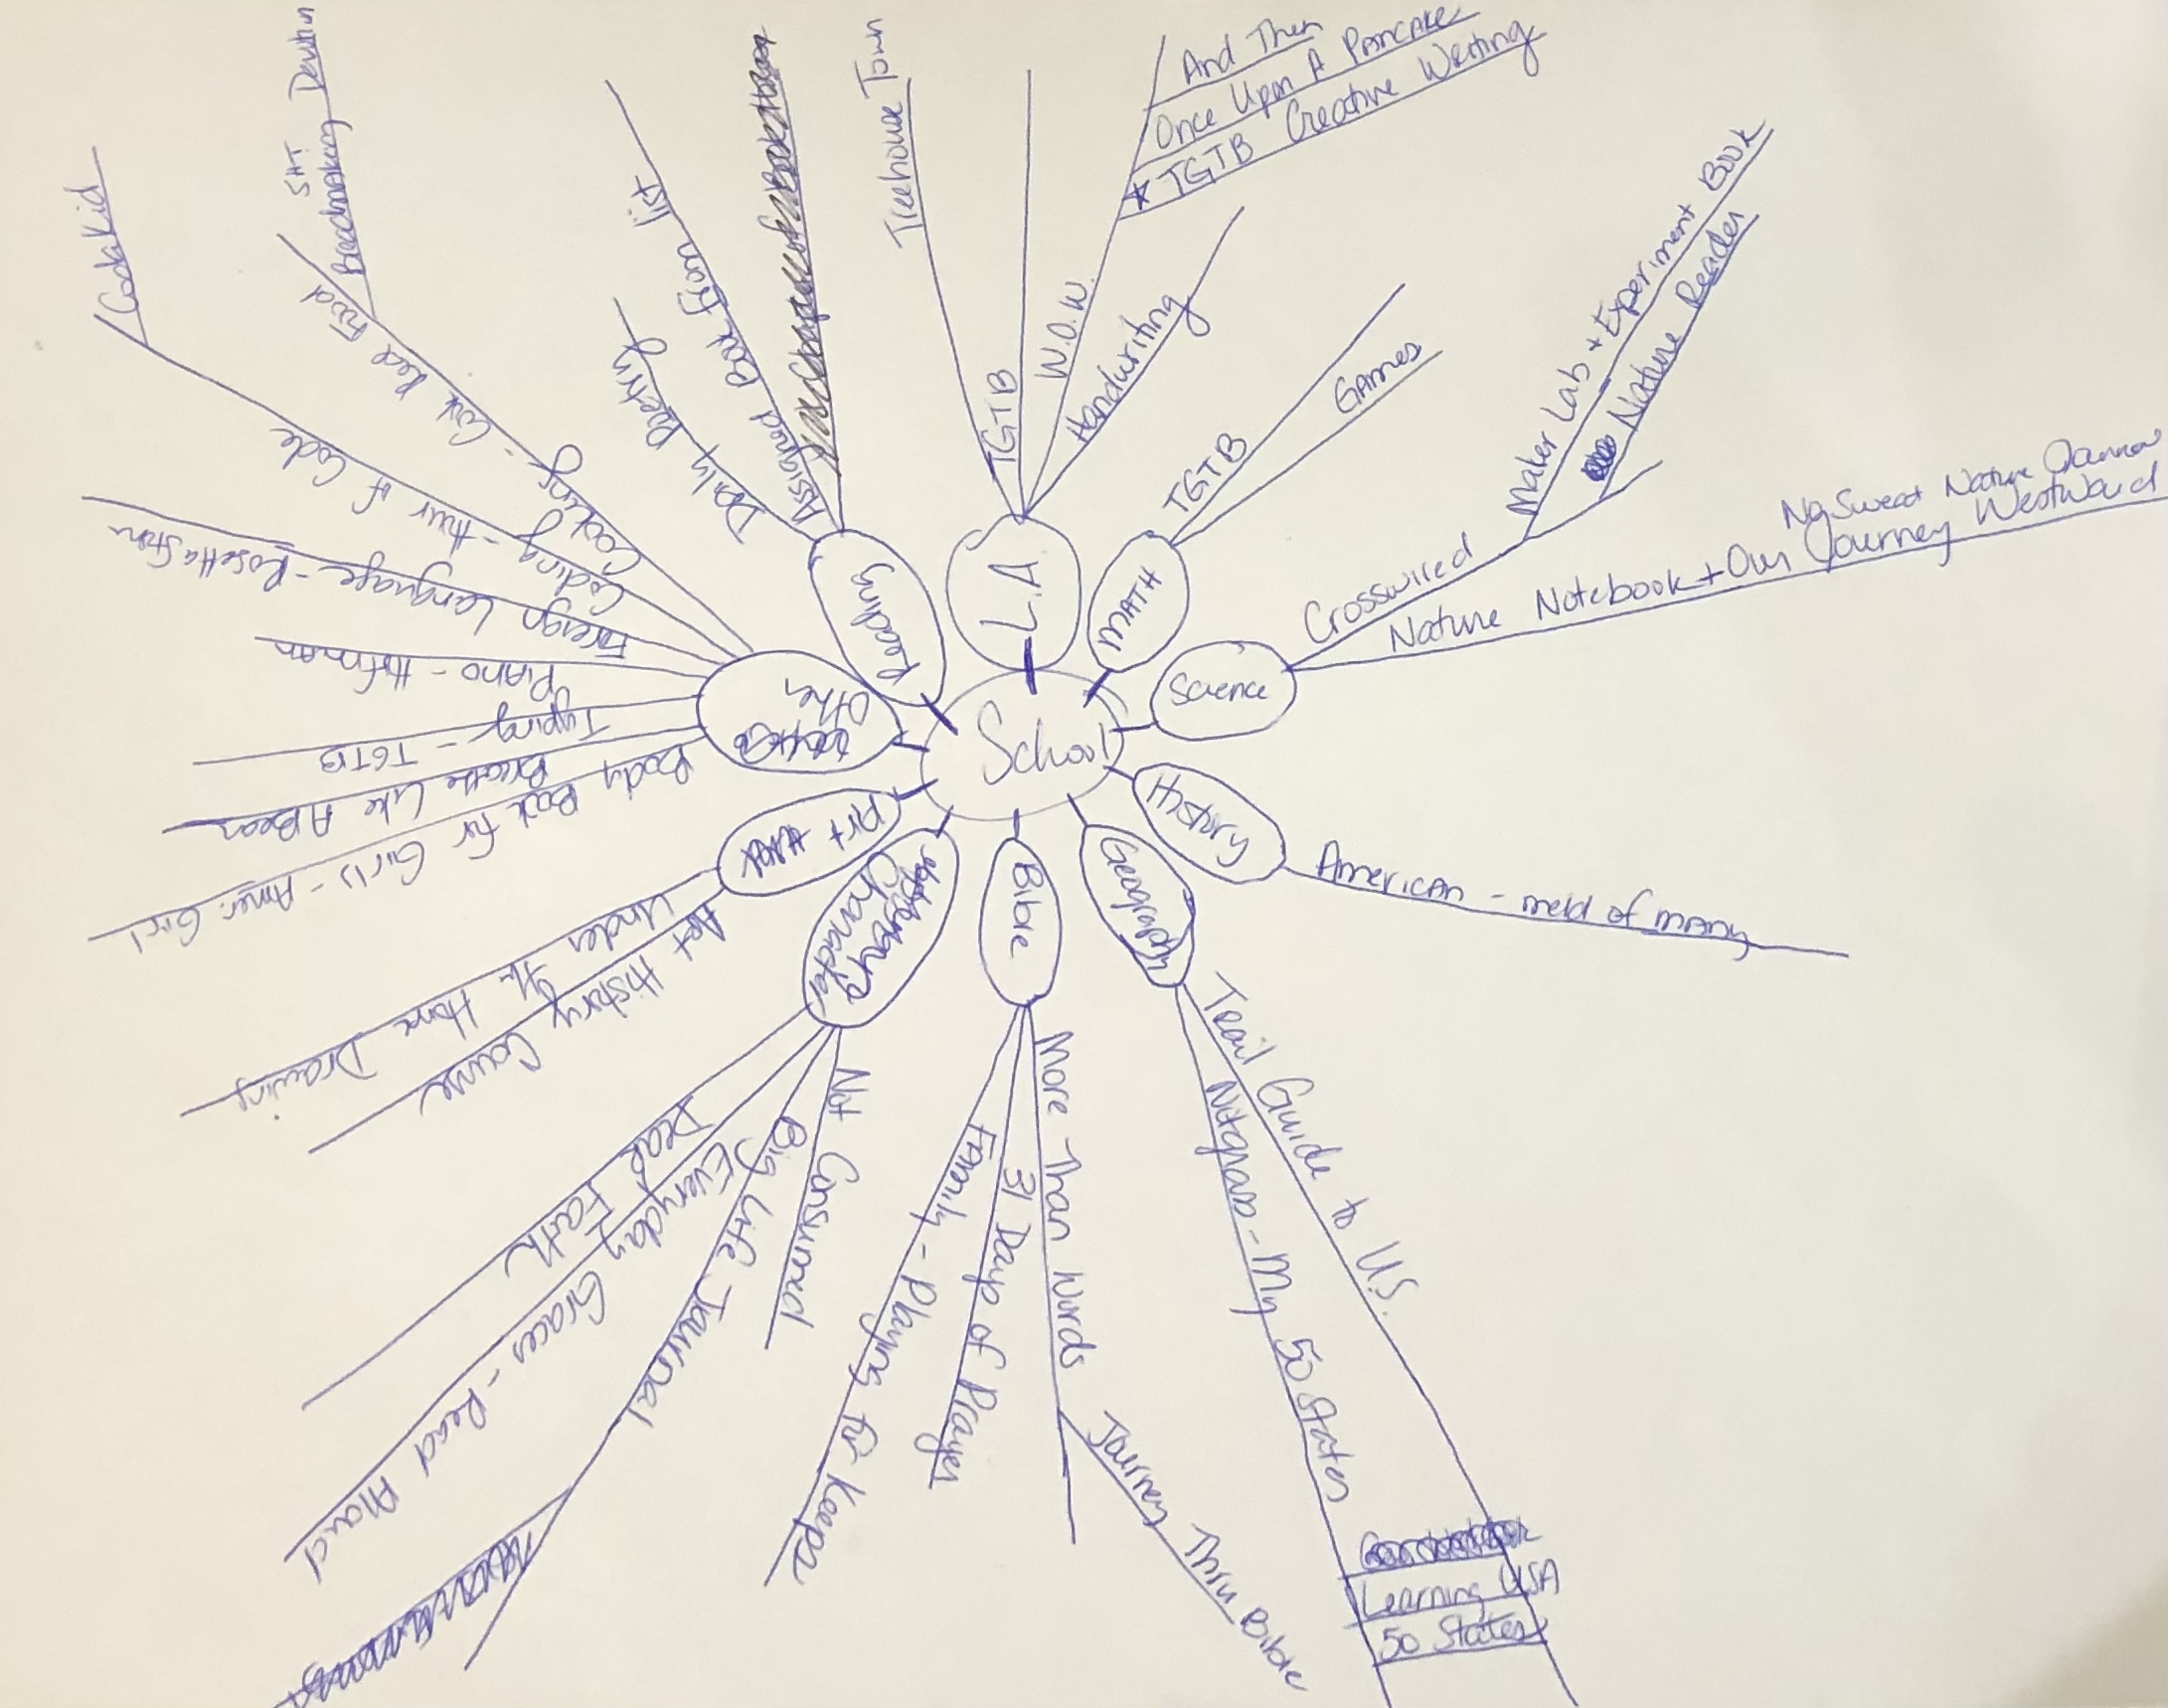 School
LA
Treehouse Town
TGTB
W.O.W.
And Then
Once Upon A Pancake
* TGTB Creative Writing
Handwriting
MATH
TGTB
Games
Science
Crosswired
Maker Lab + Experiment Book
Nature Reader
Nature Notebook + Our Journey Westward
No Sweat Nature
History
American - meld of many
Geography
Trail Guide to U.S.
Notgrass - My 50 States
Learning USA
50 States
Bible
More Than Words
Journey Thru Bible
31 Days of Prayer
Family - Playing for Keeps
Character
Not Consumed
Big Life Journal
Everyday Graces - Read Aloud
Dear Faith
Art
Art History Course
Under the Home Drawing
Other
Body Book for Girls - Amer. Girl
Breathe Like A Bear
Typing - TGTB
Piano - Hoffman
Foreign Language - Rosetta Stone
Coding - Hour of Code
CodaKid
Cooking - Cook Real Food
Breadmaking
SHT
Reading
Daily Poetry
Assigned Book From list